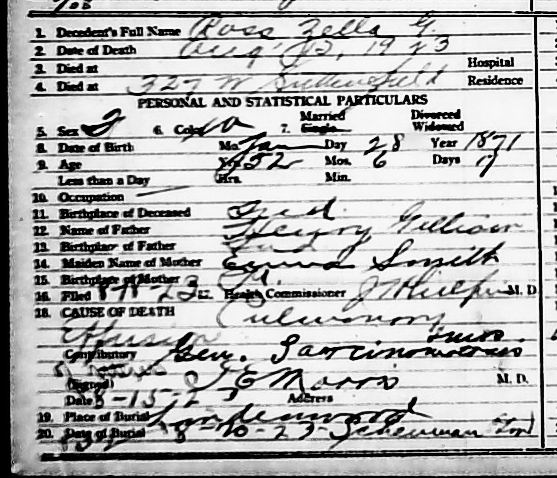 1. Decedent's Full Name Ross Zella G.
2. Date of Death Aug 12, 1923
3. Died at Hospital
4. Died at 327 W Residence
PERSONAL AND STATISTICAL PARTICULARS
Married Divorced
5. Sex F 6. Color W 7. Single Widowed
8. Date of Birth Mo. Jan Day 28 Year 1871
9. Age Yrs. 52 Mos. 6 Days 17
Less than a Day Hrs. Min.
10. Occupation
11. Birthplace of Deceased Ind.
12. Name of Father Henry Gilliom
13. Birthplace of Father Ind
14. Maiden Name of Mother Emma Smith
15. Birthplace of Mother
16. Filed 8 17 23 17. Health Commissioner M. D.
18. CAUSE OF DEATH Pulmonary
Effusion
Contributory Gen. Sarcinomatous
(Signed) E Morris M. D.
Date 8-15-2 Address
19. Place of Burial Lindenwood
20. Date of Burial